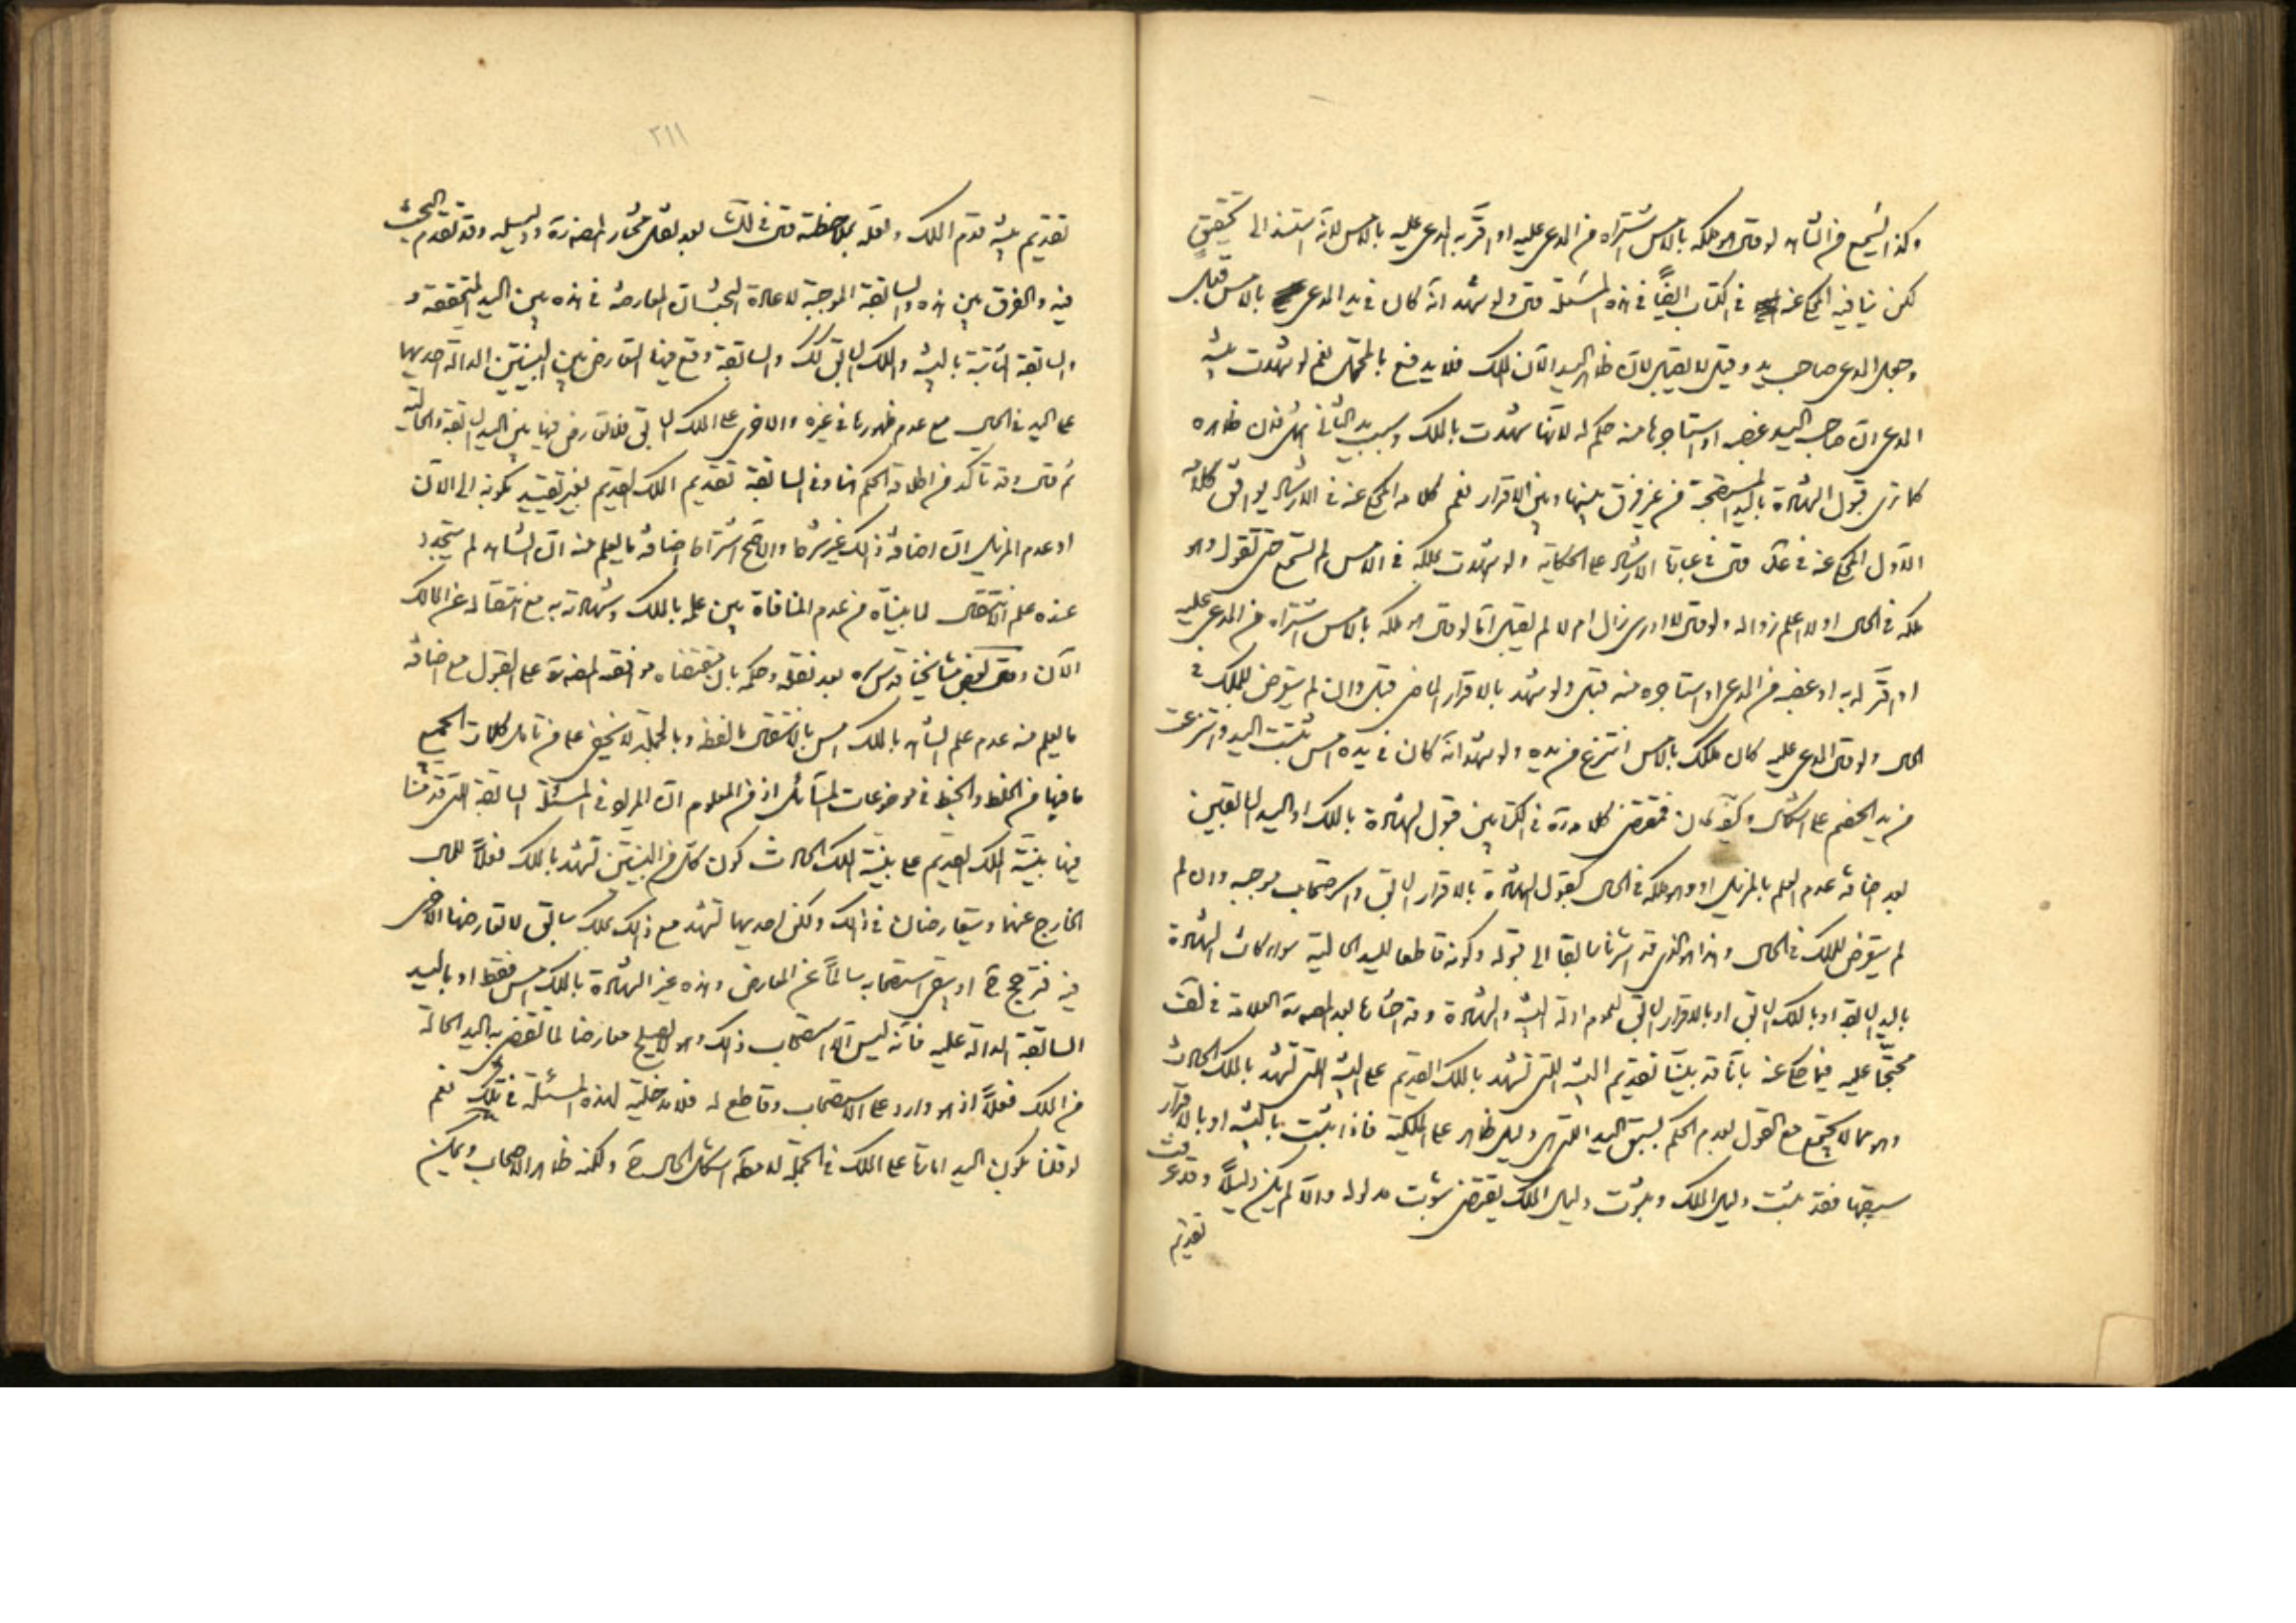 وكذا يسمع من الشاهد لو قال هو ملكه بالامس اشتراه من المدعى عليه او اقر به المدعى عليه بالامس لانه استند الى تحقيق
لكن ينافيه المحكى عنه في الكتاب ايضاً في هذه المسئلة قال ولو شهد انه كان في يد المدعى بالامس قبل
وجعل المدعى صاحب يد وقيل لا يقبل لان ظاهر اليد الآن الملك فلا يدفع بالمحتمل نعم لو شهدت بينة
المدعى ان صاحب اليد غصبه او استاجرها منه حكم له لانها شهدت بالملك وسبب يد الثاني فان ظاهره
كما ترى قبول الشهادة باليد من غير فرق بينها وبين الاقرار نعم كلامه المحكى عنه في الارشاد يوافق كلامه
الاول المحكى عنه في قال في عبارة الارشاد على الحكاية ولو شهدت بملكه في الامس لم تسمع حتى تقول وهو
ملكه في الحال او لا اعلم زواله ولو قال لا ادرى زال ام لا لم يقبل اما لو قال هو ملكه بالامس اشتراه من المدعى عليه
او اقر له به او غصبه من المدعى او استاجره منه قبل ولو شهد بالاقرار الماضى قبل وان لم يتعرض للملك في
الحال ولو قال المدعى عليه كان ملكك بالامس انتزع من يده ولو شهد انه كان في يده امس ثبتت اليد وانتزعت
من يد الخصم على اشكال وكيف كان فمقتضى كلامه في الكتابين قبول الشهادة بالملك او اليد السابقين
بعد اضافة عدم العلم بالمزيل او وهو ملكه في الحال كقبول الشهادة بالاقرار السابق واستصحاب موجبه وان لم
لم يتعرض للملك في الحال وهذا هو الذى قد اشرنا سابقا الى قبوله وكونه قاطعا لليد الحالية سواء كانت الشهادة
باليد السابقة او بالملك السابق او بالاقرار السابق لعموم ادلة البينة والشهادة وقد اختارها بعد المصنف العلامة في
محتجّا عليه فيما حكى عنه بانا قد بيّنا تقديم البينة التى تشهد بالملك القديم على البينة التى تشهد بالملك الحادث
وهو مما لا يجتمع مع القول بعدم الحكم بسبق اليد التى هي دليل ظاهر على الملكية فاذا ثبت بالبينة او بالاقرار
سبقها فقد ثبت دليل الملك وثبوت دليل الملك يقتضى ثبوت مدلوله والا لم يكن دليلاً وقد عرفت
تقديم
٢١١
تقديم بينة قدم الملك ولعله بملاحظة قال في بعد نقل مختار المصنف ودليله وقد تقدم البحث
فيه والفرق بين هذه والسابقة الموجبة لاعادة البحث ان المعارضة في هذه بين اليد المتحققة و
السابقة الثابتة بالبينة والملك السابق كذلك والسابقة وقع فيها التعارض بين البينتين الدالة احديهما
على اليد في الحال مع عدم ظهورها في غيره والاخرى على الملك السابق فلا تعارض فيها بين اليد السابقة والحالية
ثم قال وقد تأكد من اطلاق الحكم هنا وفي السابقة تقديم الملك القديم بغير تقييد بكونه الى الآن
او عدم المزيل ان اضافة ذلك غير شرط والاصح اشتراط اضافة ما يعلم منه ان الشاهد لم يتجدد
عنده علم الانتقال لما بيناه من عدم المنافاة بين علمه بالملك وشهادته به مع انتقاله عن المالك
الآن وعن بعض مشايخنا قدس سره بعد نقله وحكمه بان مقتضاه موافقة المصنف على القبول مع اضافة
ما يعلم منه عدم علم الشاهد بالملك امس بالانتقال ما لفظه وبالجملة لا يخفى على من تأمل كلمات الجميع
ما فيها من الخلط والخبط في موضوعات المسائل اذ من المعلوم ان المراد في المسئلة السابقة التى قدمنا
فيها بينة الملك القديم على بينة الملك الحادث كون كل من البينتين تشهد بالملك فعلاً للمال
الخارج عنهما ويتعارضان في ذلك ولكن احديهما تشهد مع ذلك بملك سابق لا تعارضها الاخرى
فيه فترجح ح او يبقى استصحابه سالماً عن المعارض وهذه غير الشهادة بالملك امس فقط او باليد
السابقة الدالة عليه فانه ليس الا استصحاب ذلك وهو لا يصلح معارضا لما تقتضى به اليد الحالية
من الملك فعلاً اذ هو وارد على الاستصحاب وقاطع له فلا مدخلية لهذه المسئلة في تلك نعم
لو قلنا بكون اليد امارة على الملك في الجملة لا مطلقا اشكل الحال ح ولكنه ظاهر الاصحاب ويمكن